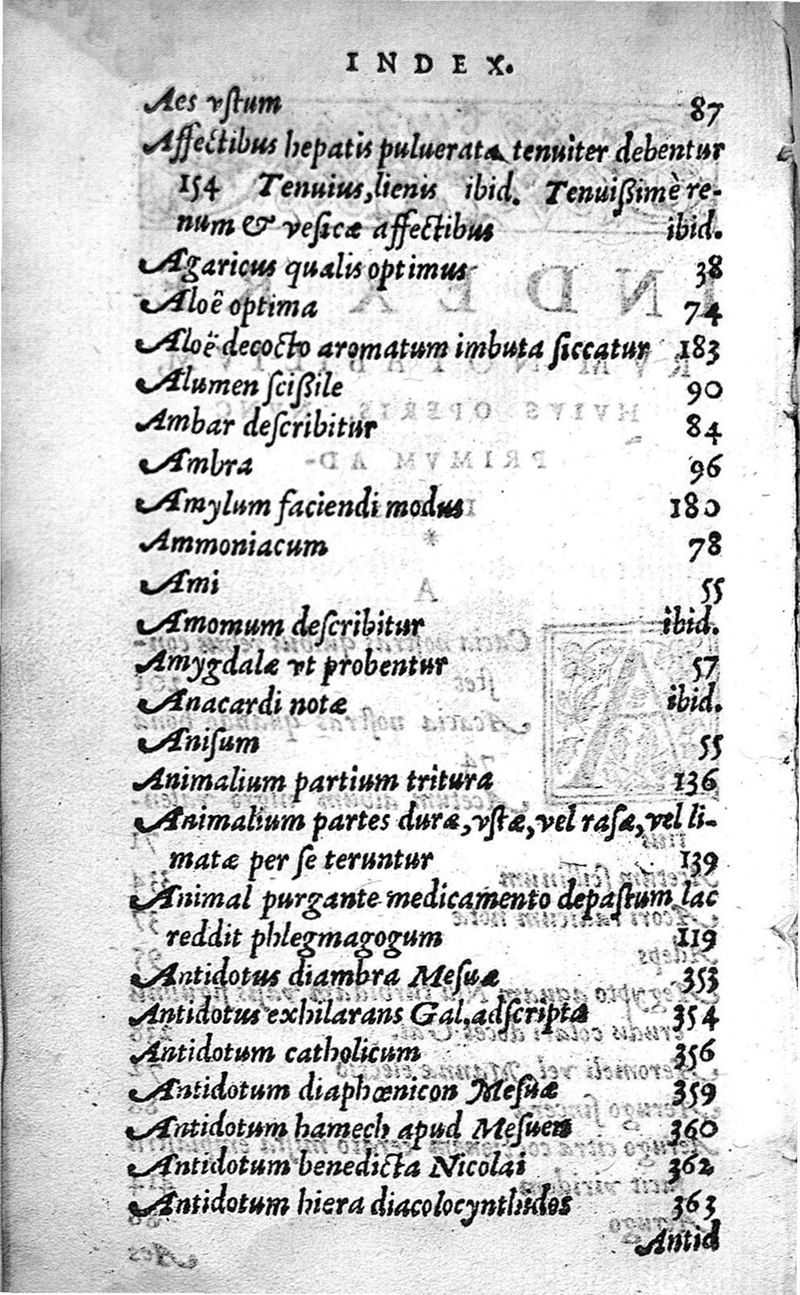 INDEX.
Aes vſtum 87
Affectibus hepatis puluerata tenuiter debentur
154 Tenuius, lienis ibid. Tenuißimè re-
num & veſicæ affectibus ibid.
Agaricus qualis optimus 38
Aloë optima 74
Aloë decocto aromatum imbuta ſiccatur 183
Alumen ſcißile 90
Ambar deſcribitur 84
Ambra 96
Amylum faciendi modus 180
Ammoniacum 78
Ami 55
Amomum deſcribitur ibid.
Amygdalæ vt probentur 57
Anacardi notæ ibid.
Aniſum 55
Animalium partium tritura 136
Animalium partes duræ, vſtæ, vel raſæ, vel li-
matæ per ſe teruntur 139
Animal purgante medicamento depaſtum lac
reddit phlegmagogum 119
Antidotus diambra Meſuæ 353
Antidotus exhilarans Gal. adſcripta 354
Antidotum catholicum 356
Antidotum diaphœnicon Meſuæ 359
Antidotum hamech apud Meſuen 360
Antidotum benedicta Nicolai 362
Antidotum hiera diacolocynthidos 363
Antid